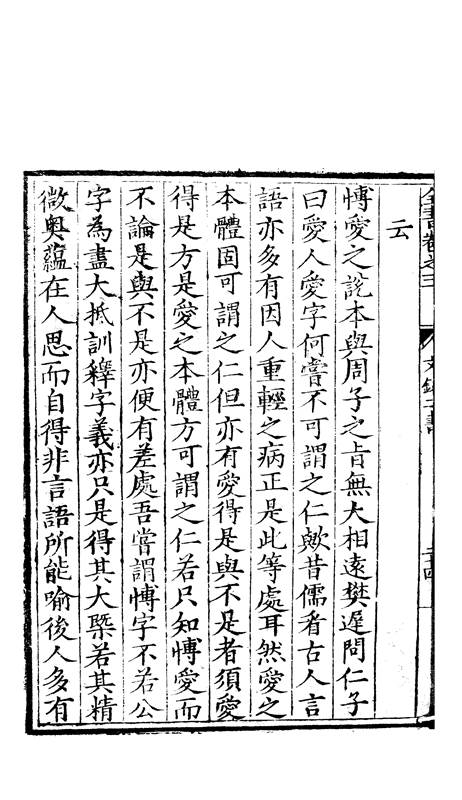 云
愽愛之說本與周子之旨無大相遠樊遲問仁子
曰愛人愛字何嘗不可謂之仁歟昔儒看古人言
語亦多有因人重輕之病正是此等處耳然愛之
本體固可謂之仁但亦有愛得是與不是者須愛
得是方是愛之本體方可謂之仁若只知愽愛而
不論是與不是亦便有差處吾嘗謂愽字不若公
字為盡大抵訓釋字義亦只是得其大槩若其精
微奥蘊在人思而自得非言語所能喻後人多有